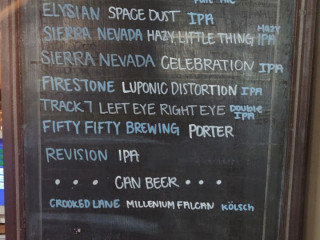 ELYSIAN SPACE DUST IPA
SIERRA NEVADA HAZY LITTLE THING HAZY IPA
SIERRA NEVADA CELEBRATION IPA
FIRESTONE LUPONIC DISTORTION IPA
TRACK 7 LEFT EYE RIGHT EYE DOUBLE IPA
FIFTY FIFTY BREWING PORTER
REVISION IPA
• • • CAN BEER • • •
CROOKED LANE MILLENIUM FALCAN KÖLSCH